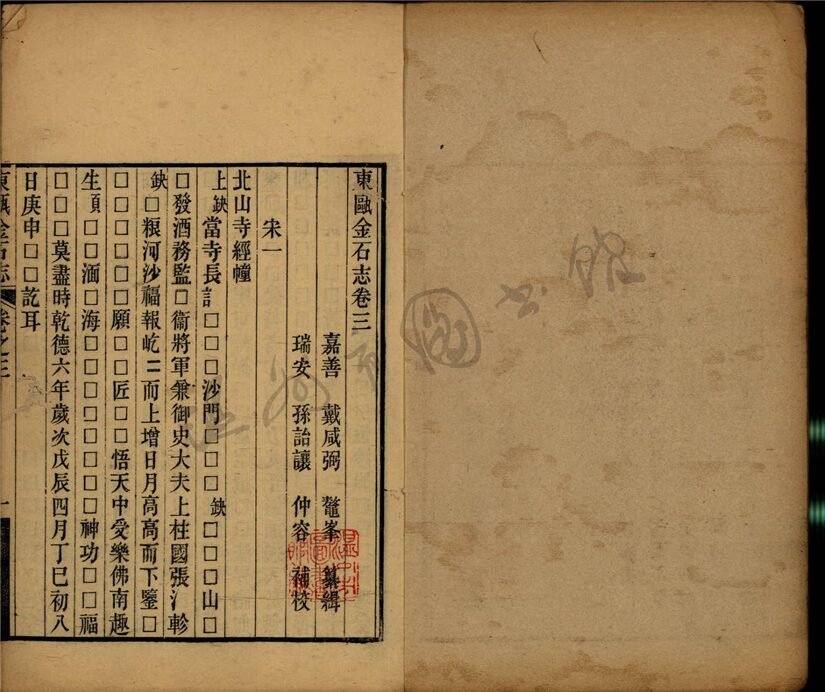 東甌金石志卷三
嘉善 戴咸弼 鼇峯 纂緝
瑞安 孫詒讓 仲容 補校
宋一
北山寺經幢
上缺當寺長訁□□□□沙門□□□缺□□□□山□
□發酒務監□衞將軍兼御史大夫上柱國張氵軫
缺□粮河沙福報屹二而上增日月高高而下鑒□
□□□□□□願□□匠□□悟天中受樂佛南趣
生頂□□湎□海□□□□□□□□□神功□□福
□□□□莫盡時乾德六年歲次戊辰四月丁巳初八
日庚申□□訖耳
東甌金石志 卷之三 一
溫州市圖書館